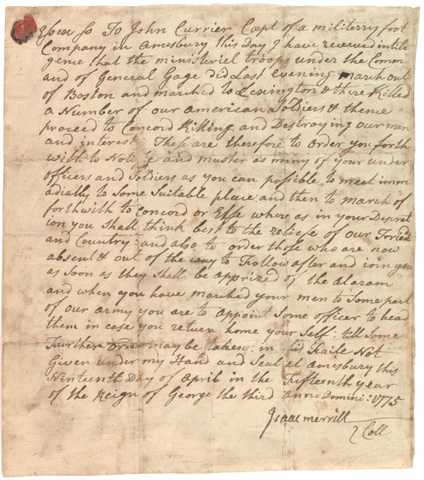 Essex ss To John Currier Capt of a militerry foot
Company in Amesbury this Day I have receved intile
gence that the ministeriel troops under the Comm
and of General Gage did Last evening march out
of Boston and marched to Lexington & there Killed
a Number of our american Soldiers & thence
proceed to Concord Killing and Destroying our men
and interest: These are therefore to order you forth
with to Notifie and muster as many of your under
officers and Soldiers as you can possible to meet imm
adially to Some Suitable place and then to march of
forthwith to Concord or Else where as in your Descreat
ion you Shall think best to the reliefe of our Friends
and Country: and also to order those who are now
absent & out of the way to Follow after and ioin you
as Soon as they Shall be apprized of the Alaram
and when you have marched your men to Some part
of our army you are to appoint some officer to head
them in case you return home your Self: till Some
Further Order may be taken: in this Faile Not
Given under my Hand and Seal at Amesbury this
Ninteenth Day of April in the Fifteenth year
of the Reign of George the third Anno Domini: 1775
Isaac merrill
Coll